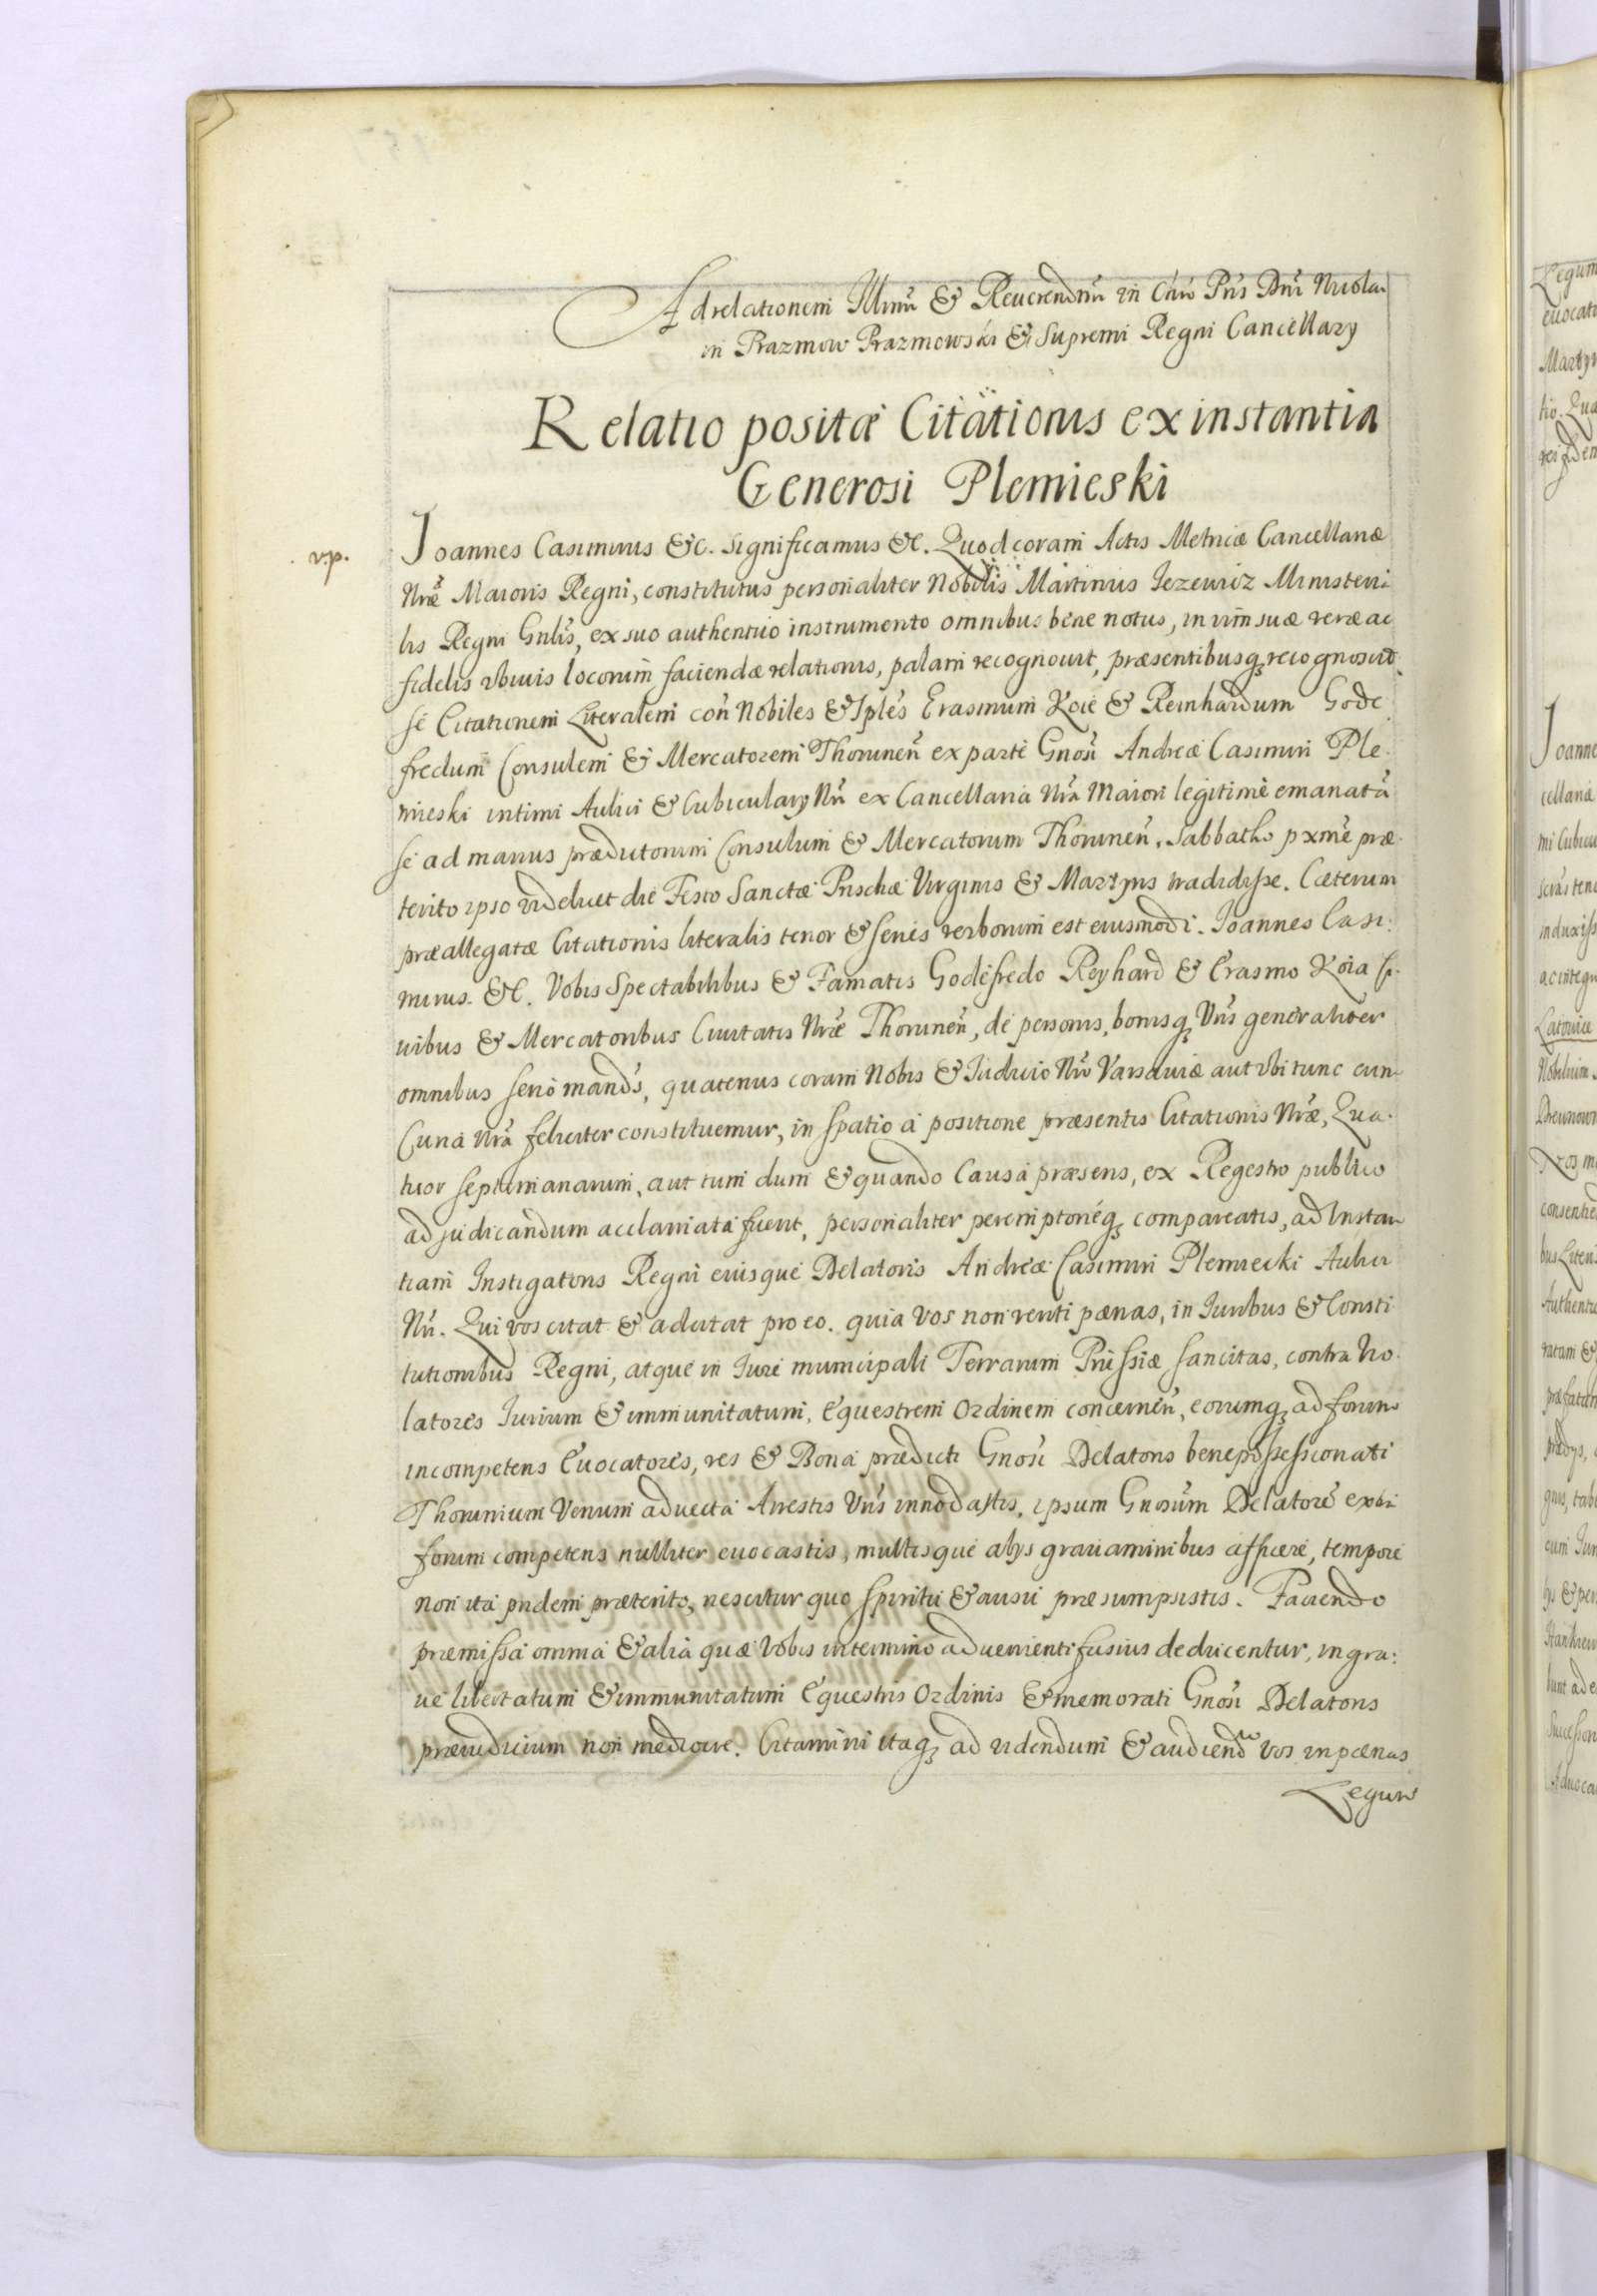 Ad relationem Illmi & Reuerendmi in Chro Pris Dni Nicolai
in Prazmow Prazmowski & Supremi Regni Cancellary
Relatio positæ Citationis ex instantia
Generosi Plemieski
v.p.
Joannes Casimirus &c. significamus &c. Quod coram Actis Metricæ Cancellariæ
Nræ Maioris Regni, constitutus personaliter Nobilis Martinus Jezewicz Ministeria
lis Regni Gnlis, ex suo authentico instrumento omnibus bene notus, in vim suæ veræ ac
fidelis vbiuis locorum faciendæ relationis, palam recognouit, præsentibusq recognoscit
se Citationem Literalem con Nobiles & Sples Erasmum Koie & Reinhardum Gode
fredum Consulem & Mercatorem Thorunen ex parte Gnosi Andreæ Casimiri Ple
mieski intimi Aulici & Cubiculary Nri ex Cancellaria Nra Maiori legitime emanatã
se ad manus prædictorum Consulum & Mercatorum Thorunen. Sabbatho pxme præ
terito ipso videlicet die Festo Sanctæ Priscæ Virginis & Martyris tradidisse. Cæterum
præallegatæ Citationis literalis tenor & series verborum est eiusmodi. Joannes Casi:
mirus. &c. Vobis Spectabilibus & Famatis Godefredo Reyhard & Erasmo Koia Ci
uibus & Mercatoribus Ciuitatis Nræ Thorunen, de personis, bonisq Vris generaliter
omnibus serio mands, quatenus coram Nobis & Iudicio Nro Varsauiæ aut vbi tunc cum
Curia Nra feliciter constituemur, in spatio à positione præsentis Citationis Nræ, Qua
tuor septimanarum, aut tum dum & quando Causa præsens, ex Regestro publico
ad judicandum acclamata fuerit, personaliter peremptorieq compareatis, ad Instan
tiam Instigatoris Regni eiusque Delatoris Andreæ Casimiri Plemiecki Aulici
Nri. Qui vos citat & adcitat pro eo. quia Vos non veriti pænas, in Iuribus & Consti
tutionibus Regni, atque in Iure municipali Terrarum Prussiæ sancitas, contra vio
latores Iurium & immunitatum, Equestrem Ordinem concernen, eorumq ad forum
incompetens Euocatores, res & Bona prædicti Gnosi Delatoris benepossessionati
Thorunium Venum aduecta Arrestis Vris innodastis, ipsum Gnosum Delatore extra
forum competens nulliter euocastis, multisque alys grauaminibus afficere, tempore
non ita pridem præterito, nescitur quo spiritu & ausu præsumpsistis. Faciendo
præmissa omnia & alia quæ Vobis in termino aduenienti fusius deducentur, in gra:
ue libertatum & immunitatum Equestris Ordinis & memorati Gnosi Delatoris
præiudicium non mediocre. Citamini itaq ad videndum & audiendo vos in pænas
Legum